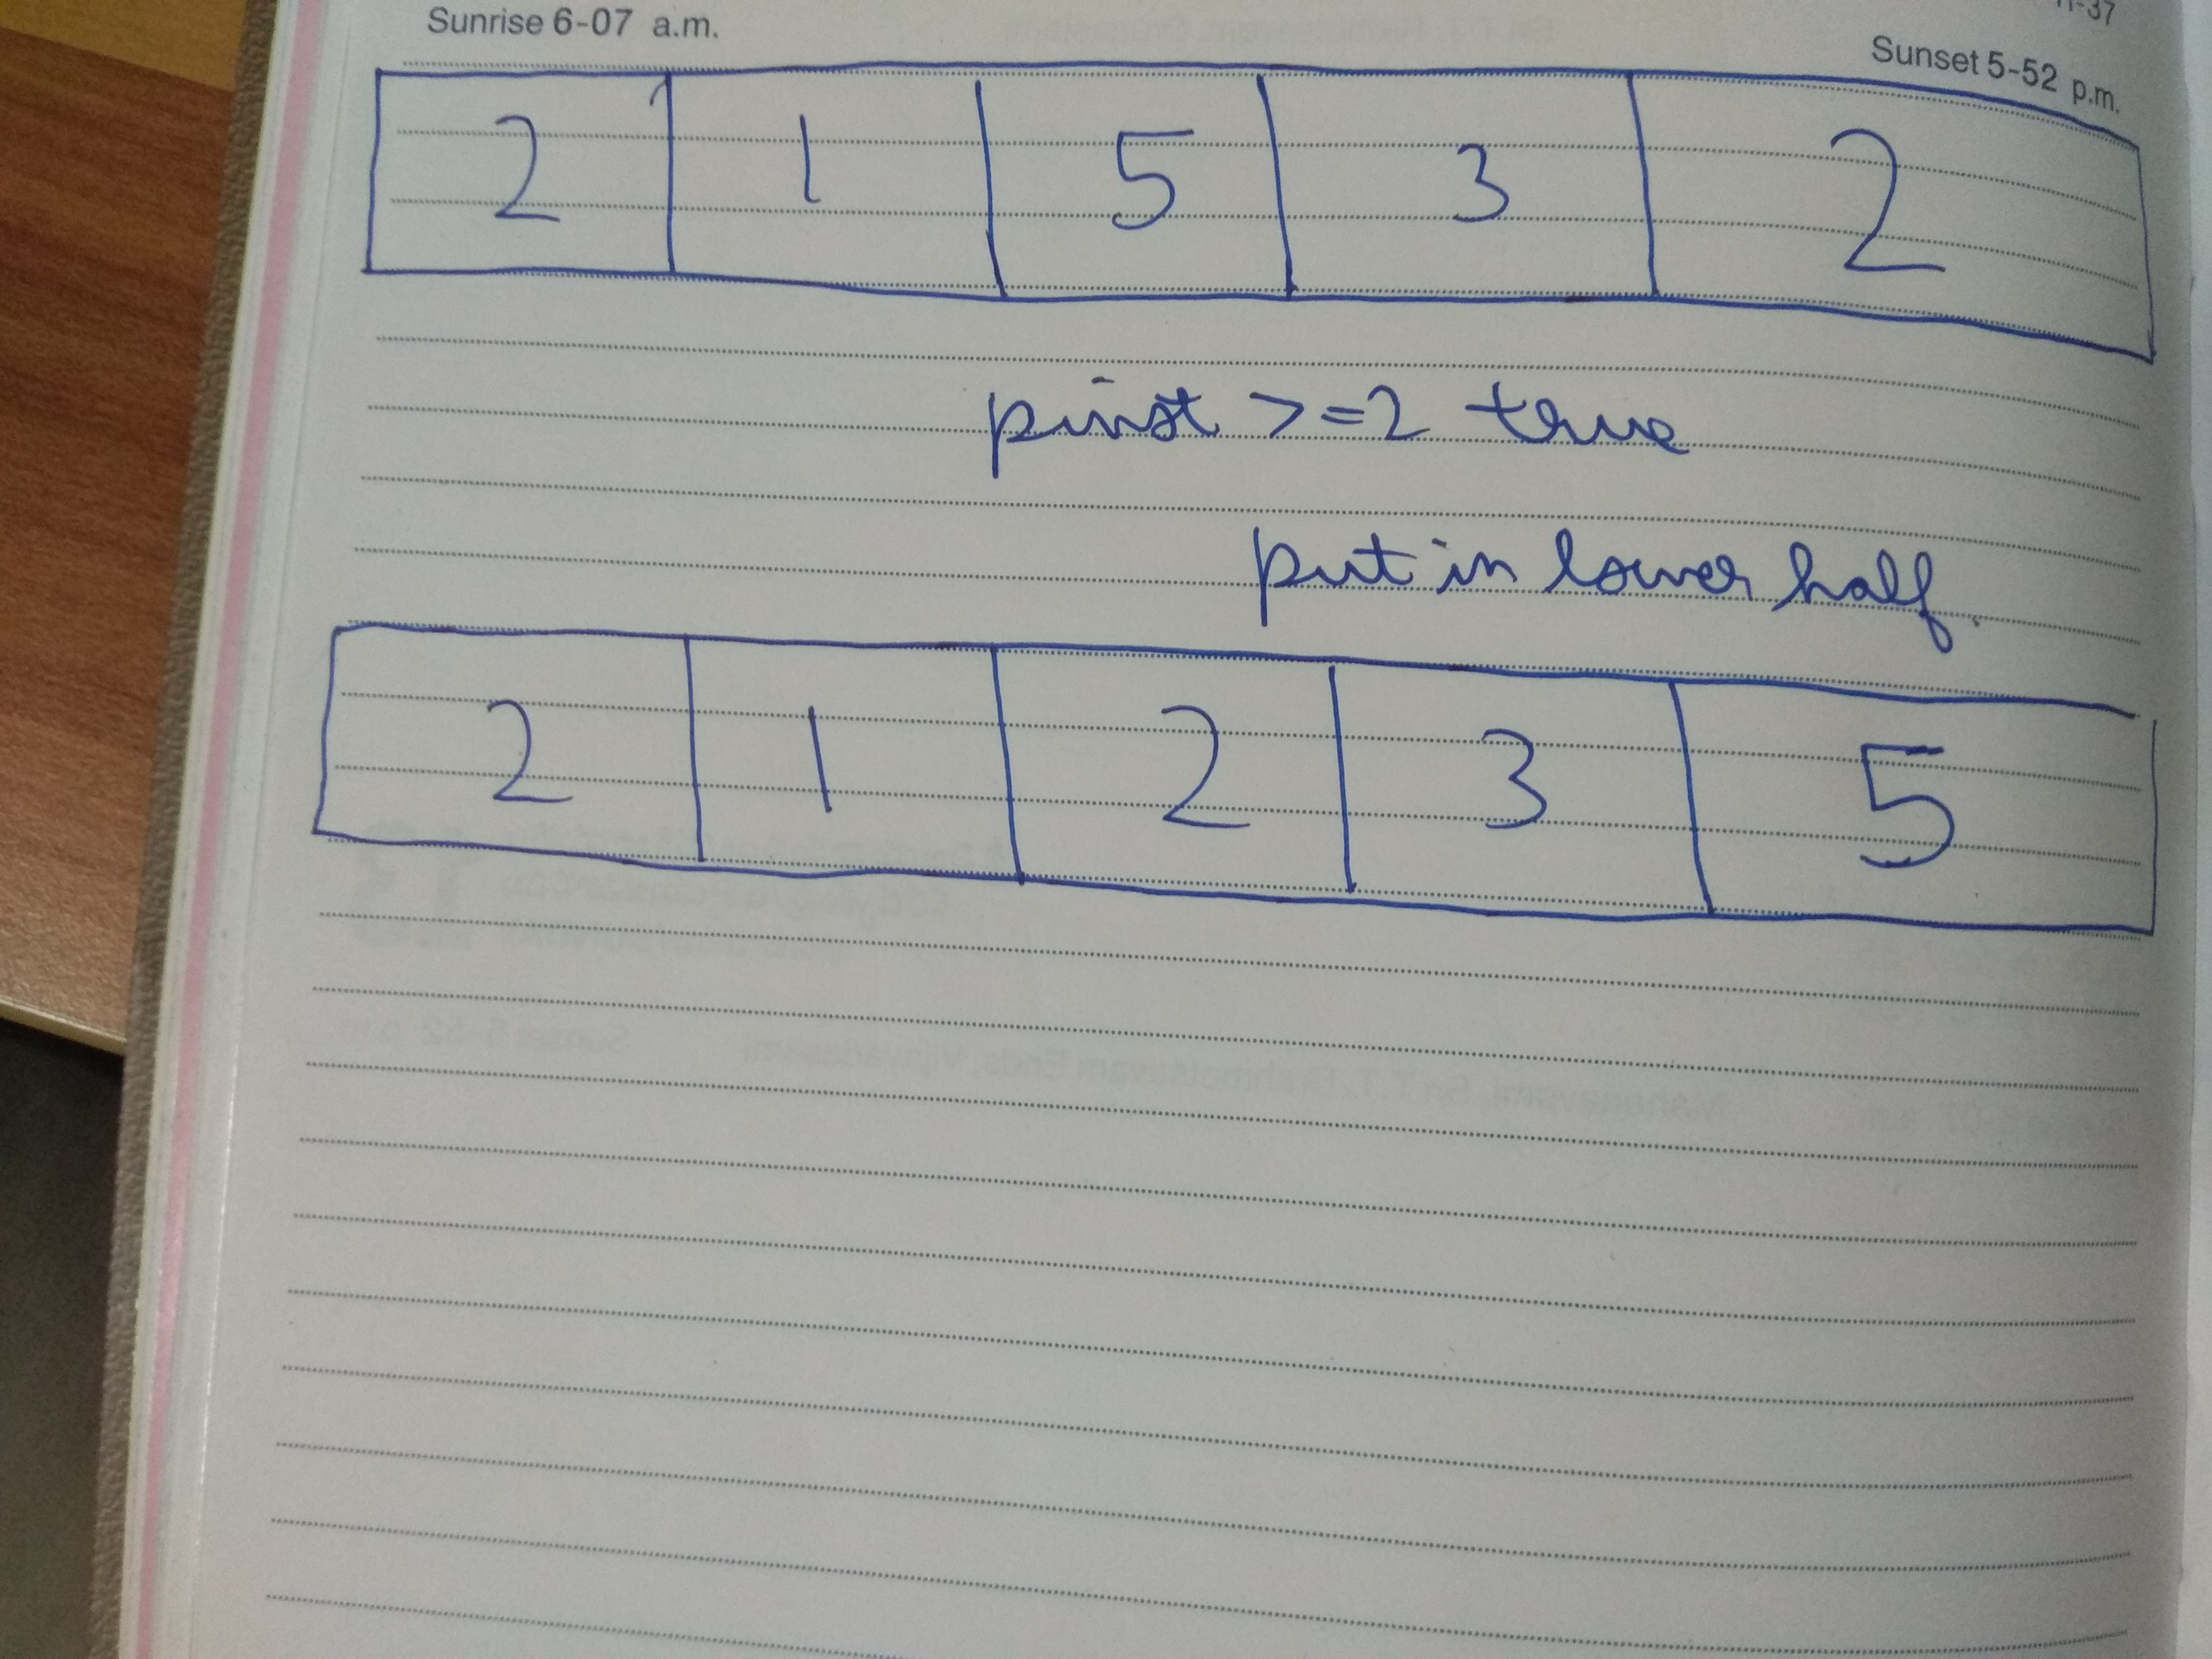 11-37
Sunrise 6-07 a.m.
Sunset 5-52 p.m.
2 1 5 3 2
pivot >=2 true
put in lower half.
2 1 2 3 5